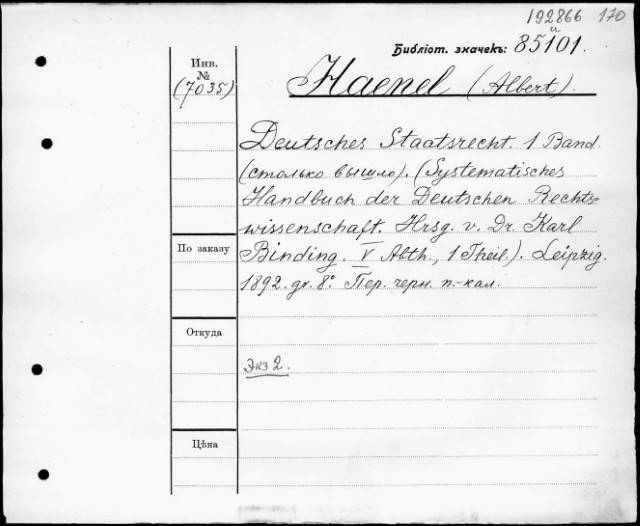 192866 170
Библіот. значекъ: 85101.
и
Инв.
№
(7035)
Haenel (Albert).
Deutsches Staatsrecht. 1 Band
(столько вышло). (Systematisches
Handbuch der Deutschen Rechts-
wissenschaft. Hrsg. v. Dr. Karl
Binding. V Abth., 1 Theil.). Leipzig.
1892. gr. 8°. Пер. черн. п.-кал.
По заказу
Откуда
Экз 2.
Цѣна